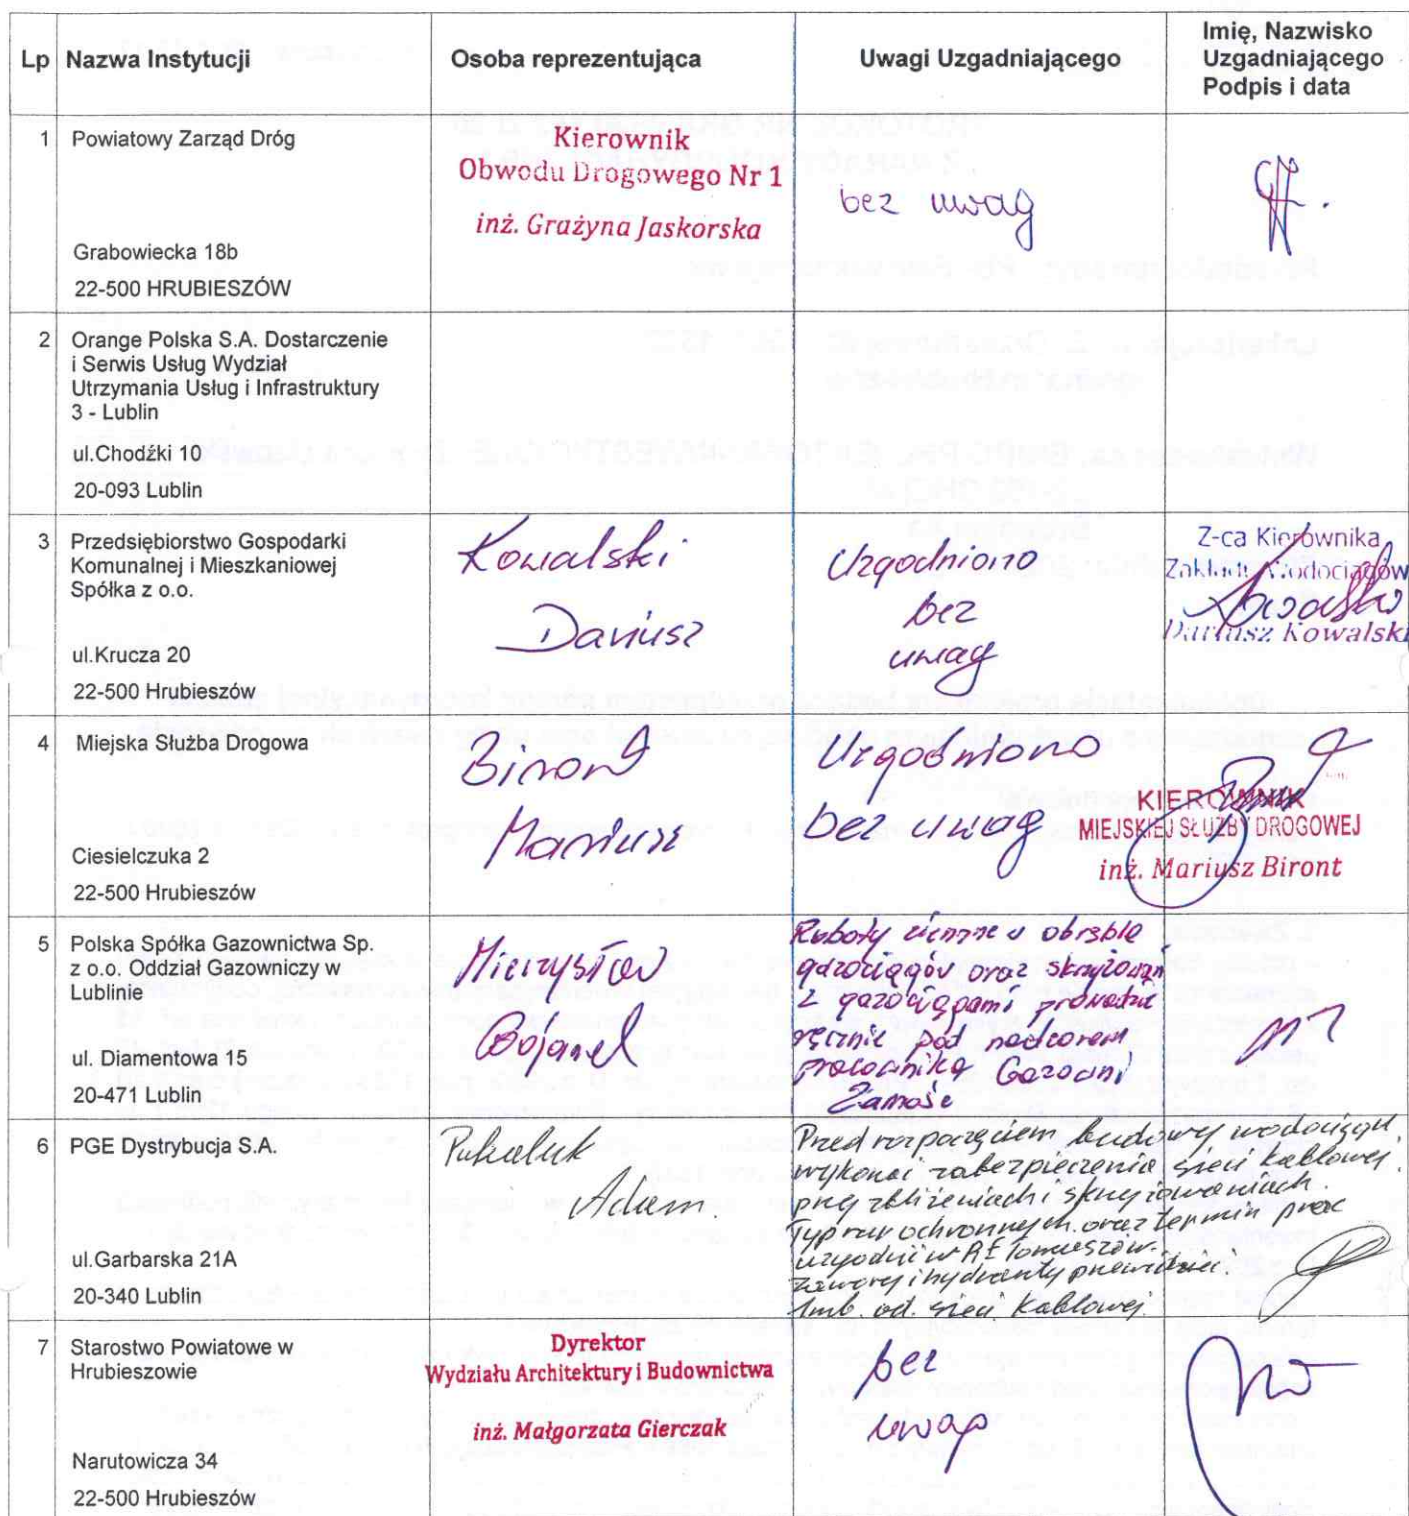 Lp
Nazwa Instytucji
Osoba reprezentująca
Uwagi Uzgadniającego
Imię, Nazwisko
Uzgadniającego
Podpis i data
1
Powiatowy Zarząd Dróg
Grabowiecka 18b
22-500 HRUBIESZÓW
Kierownik
Obwodu Drogowego Nr 1
inż. Grażyna Jaskorska
bez uwag
2
Orange Polska S.A. Dostarczenie
i Serwis Usług Wydział
Utrzymania Usług i Infrastruktury
3 - Lublin
ul.Chodźki 10
20-093 Lublin
3
Przedsiębiorstwo Gospodarki
Komunalnej i Mieszkaniowej
Spółka z o.o.
ul.Krucza 20
22-500 Hrubieszów
Kowalski
Dariusz
Uzgodniono
bez
uwag
Z-ca Kierownika
Zakładu Wodociągów
Dariusz Kowalski
4
Miejska Służba Drogowa
Ciesielczuka 2
22-500 Hrubieszów
Biront
Mariusz
Uzgodniono
bez uwag
KIEROWNIK
MIEJSKIEJ SŁUŻBY DROGOWEJ
inż. Mariusz Biront
5
Polska Spółka Gazownictwa Sp.
z o.o. Oddział Gazowniczy w
Lublinie
ul. Diamentowa 15
20-471 Lublin
Mieczysław
Roboty ziemne w obrębie
gazociągów oraz skrzyżowań
z gazociągami prowadzić
ręcznie pod nadzorem
pracownika Gazowni
Zamość
6
PGE Dystrybucja S.A.
ul.Garbarska 21A
20-340 Lublin
Adam
Przed rozpoczęciem budowy wodociągu
wykonać zabezpieczenia sieci kablowej
przy zbliżeniach i skrzyżowaniach.
Typ rur ochronnych oraz termin prac
uzgodnić w RE Tomaszów.
Zawory i hydranty przewidzieć
1mb. od. sieci kablowej.
7
Starostwo Powiatowe w
Hrubieszowie
Narutowicza 34
22-500 Hrubieszów
Dyrektor
Wydziału Architektury i Budownictwa
inż. Małgorzata Gierczak
bez
uwag